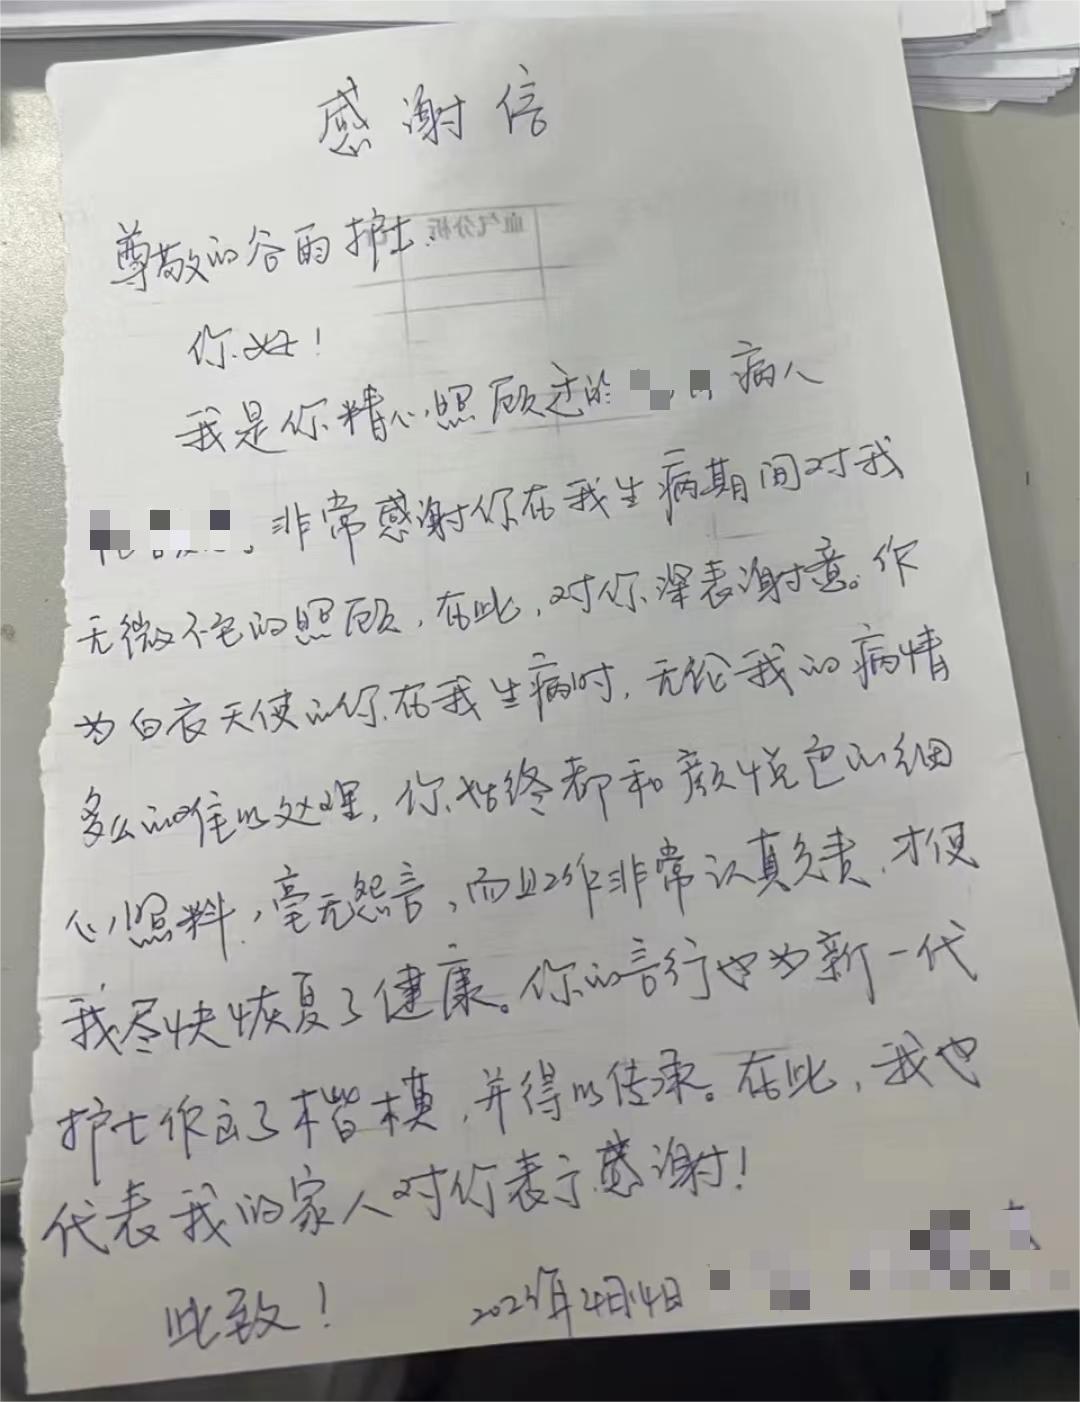 感谢信
血气分析
尊敬的谷雨护士：
你好！
我是你精心照顾过的 病人
。非常感谢你在我生病期间对我
无微不至的照顾，在此，对你深表谢意。作
为白衣天使的你在我生病时，无论我的病情
多么的难以处理，你始终都和颜悦色的细
心照料，毫无怨言，而且工作非常认真负责，才使
我尽快恢复了健康。你的言行也为新一代
护士作出了楷模，并得以传承。在此，我也
代表我的家人对你表示感谢！
此致！
年4月14日